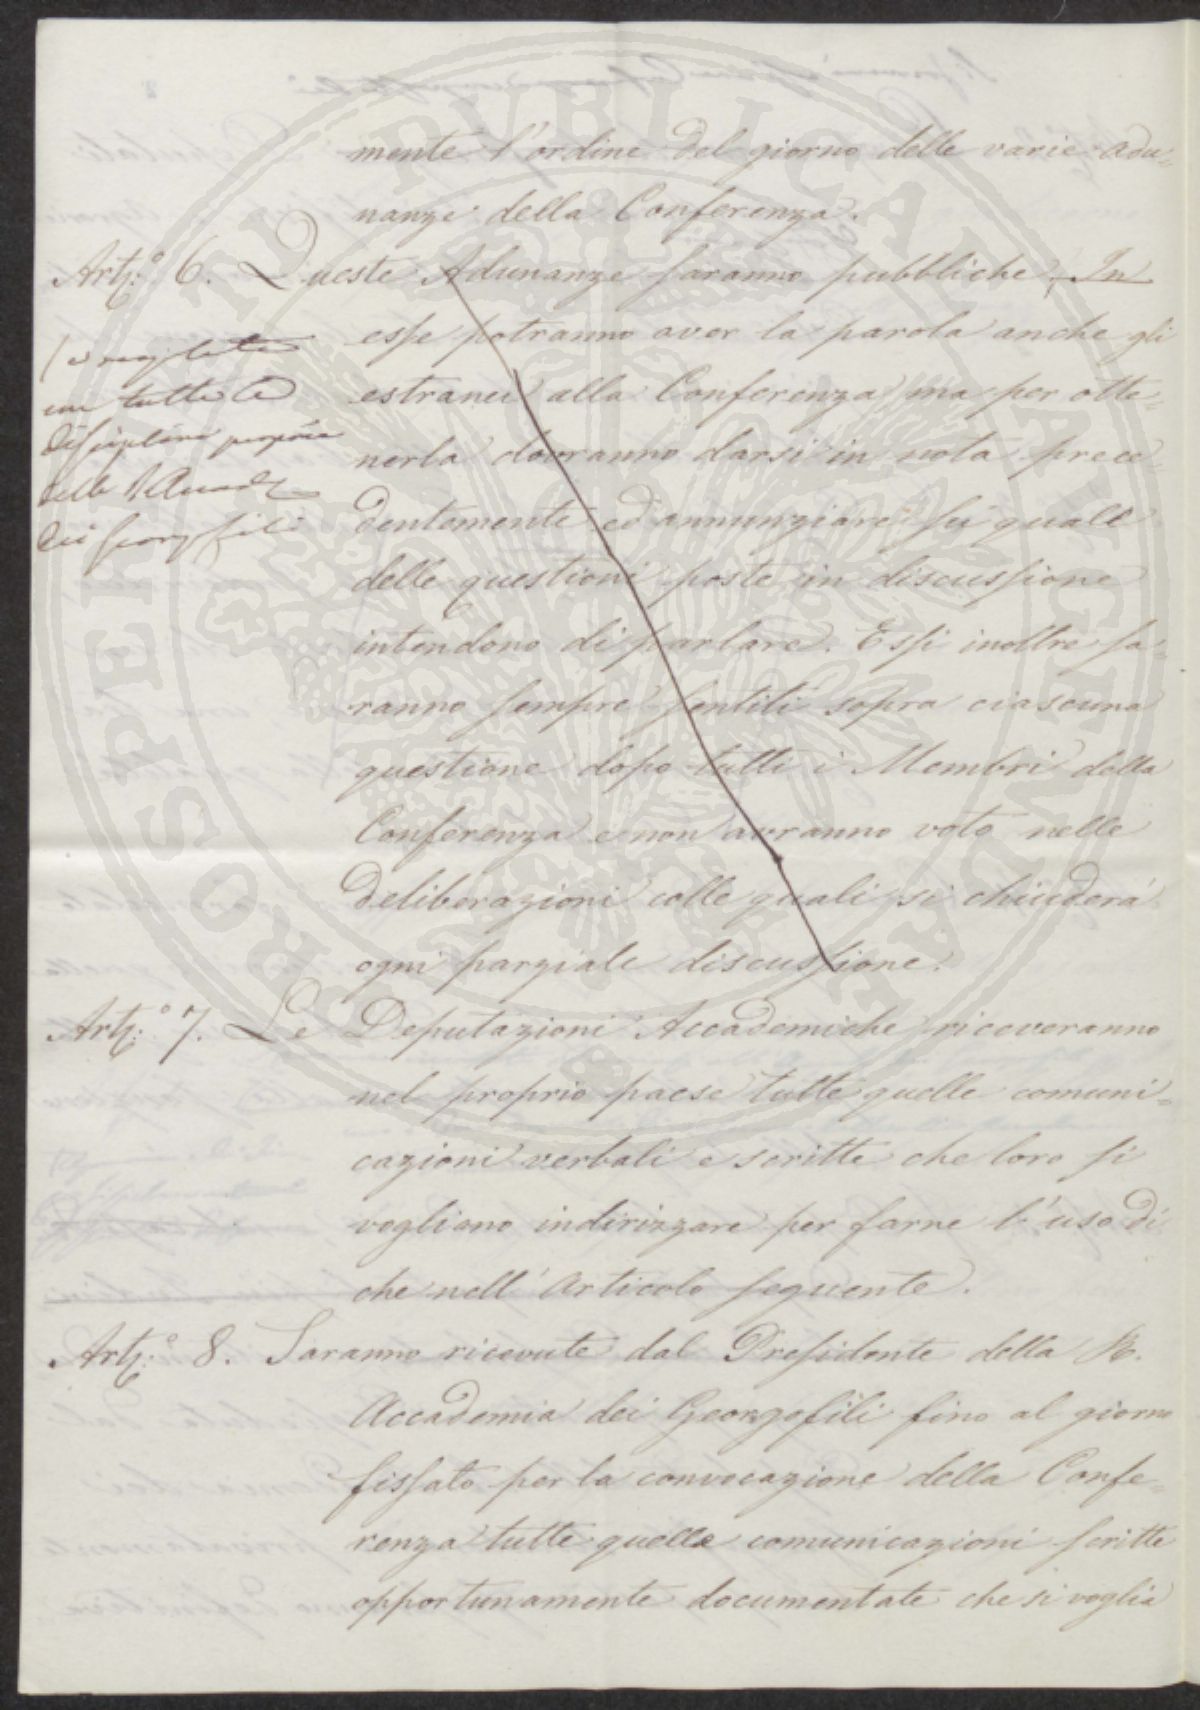 mente l'ordine del giorno delle varie adu=
nanze della Conferenza.
Art.° 6. Queste Adunanze saranno pubbliche, In
esse potranno aver la parola anche gli
estranei alla Conferenza ma per otte=
nerla dovranno darsi in nota prece=
dentemente ed annunziare su quale
delle questioni poste in discussione
intendono di parlare. Essi inoltre sa=
ranno sempre sentiti sopra ciascuna
questione dopo tutti i Membri della
Conferenza e non avranno voto nelle
deliberazioni colle quali si chiuderà
ogni parziale discussione.
con tutte le
discipline proprie
della R. Accad.
dei Georgofili
Art.° 7. Le Deputazioni Accademiche riceveranno
nel proprio paese tutte quelle comuni=
cazioni verbali e scritte che loro si
vogliano indirizzare per farne l'uso di
che nell'Articolo seguente.
Art.° 8. Saranno ricevute dal Presidente della R.
Accademia dei Georgofili fino al giorno
fissato per la convocazione della Confe=
renza tutte quelle comunicazioni scritte
opportunamente documentate che si voglia
PROSPERITATI PUBLICAE AUGENDAE